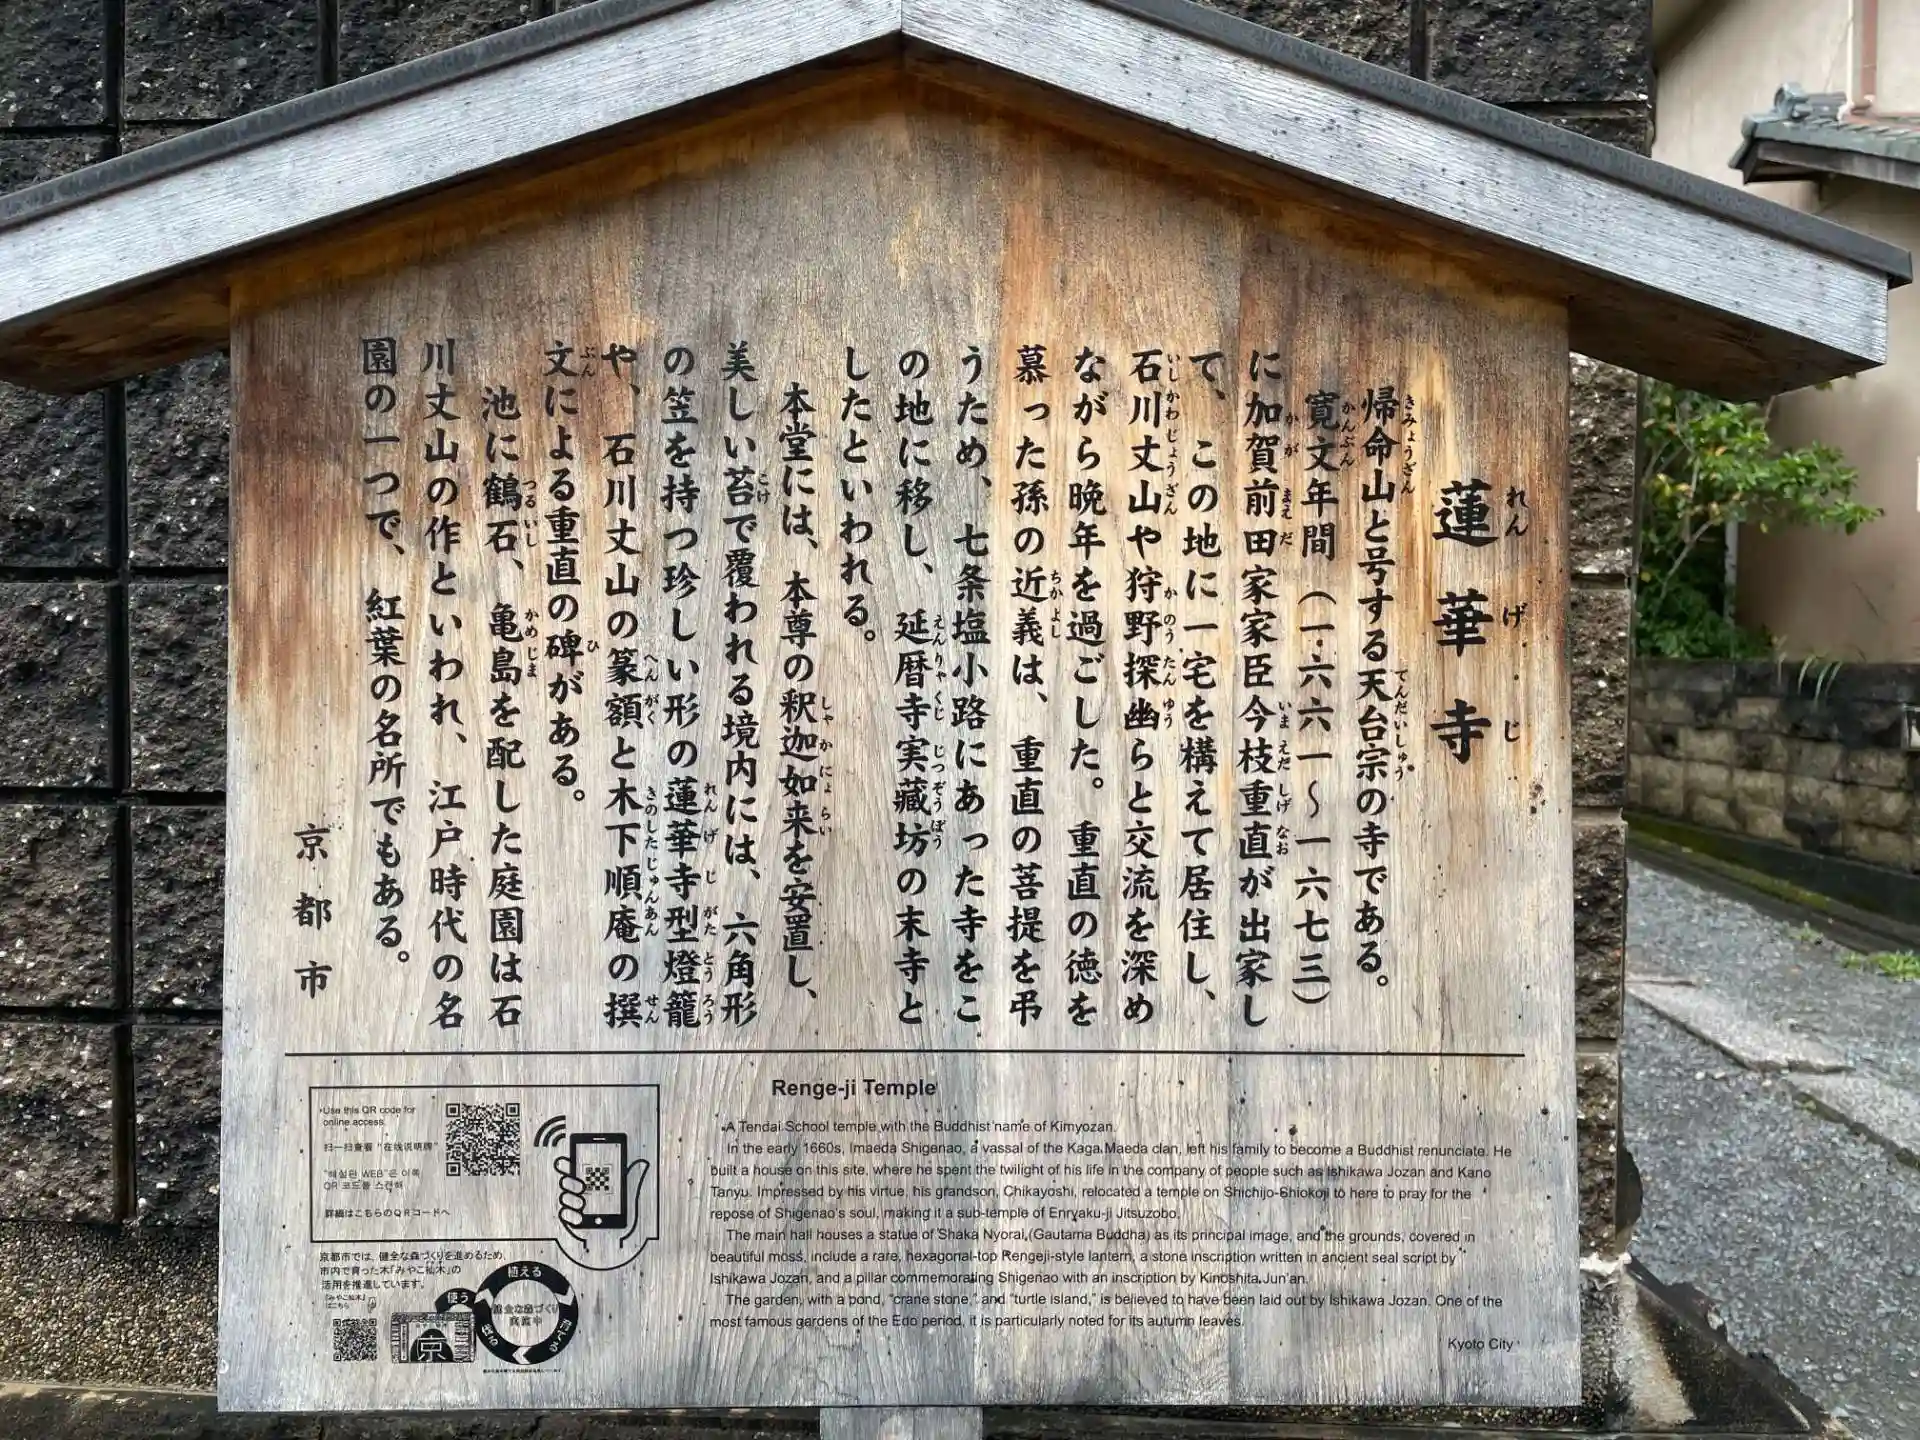 蓮華寺
帰命山と号する天台宗の寺である。
寛文年間（一六六一～一六七三）
に加賀前田家家臣今枝重直が出家し
て、この地に一宅を構えて居住し、
石川丈山や狩野探幽らと交流を深め
ながら晩年を過ごした。重直の徳を
慕った孫の近義は、重直の菩提を弔
うため、七条塩小路にあった寺をこ
の地に移し、延暦寺実藏坊の末寺と
したといわれる。
本堂には、本尊の釈迦如来を安置し、
美しい苔で覆われる境内には、六角形
の笠を持つ珍しい形の蓮華寺型燈籠
や、石川丈山の篆額と木下順庵の撰
文による重直の碑がある。
池に鶴石、亀島を配した庭園は石
川丈山の作といわれ、江戸時代の名
園の一つで、紅葉の名所でもある。
京都市
Renge-ji Temple
A Tendai School temple with the Buddhist name of Kimyozan.
In the early 1660s, Imaeda Shigenao, a vassal of the Kaga Maeda clan, left his family to become a Buddhist renunciate. He
built a house on this site, where he spent the twilight of his life in the company of people such as Ishikawa Jozan and Kano
Tanyu. Impressed by his virtue, his grandson, Chikayoshi, relocated a temple on Shichijo-Shiokoji to here to pray for the
repose of Shigenao's soul, making it a sub-temple of Enryaku-ji Jitsuzobo.
The main hall houses a statue of Shaka Nyorai (Gautama Buddha) as its principal image, and the grounds, covered in
beautiful moss, include a rare, hexagonal-top Rengeji-style lantern, a stone inscription written in ancient seal script by
Ishikawa Jozan, and a pillar commemorating Shigenao with an inscription by Kinoshita Jun'an.
The garden, with a pond, "crane stone," and "turtle island," is believed to have been laid out by Ishikawa Jozan. One of the
most famous gardens of the Edo period, it is particularly noted for its autumn leaves.
Kyoto City
Use this QR code for
online access.
扫一扫查看"在线说明牌"
"해설판 WEB"은 이쪽
QR 코드를 스캔해
詳細はこちらのQRコードへ
京都市では、健全な森づくりを進めるため、
市内で育った木「みやこ杣木」の
活用を推進しています。
「みやこ杣木」
はこちら
使う
植える
育てる
健全な森づくり
京